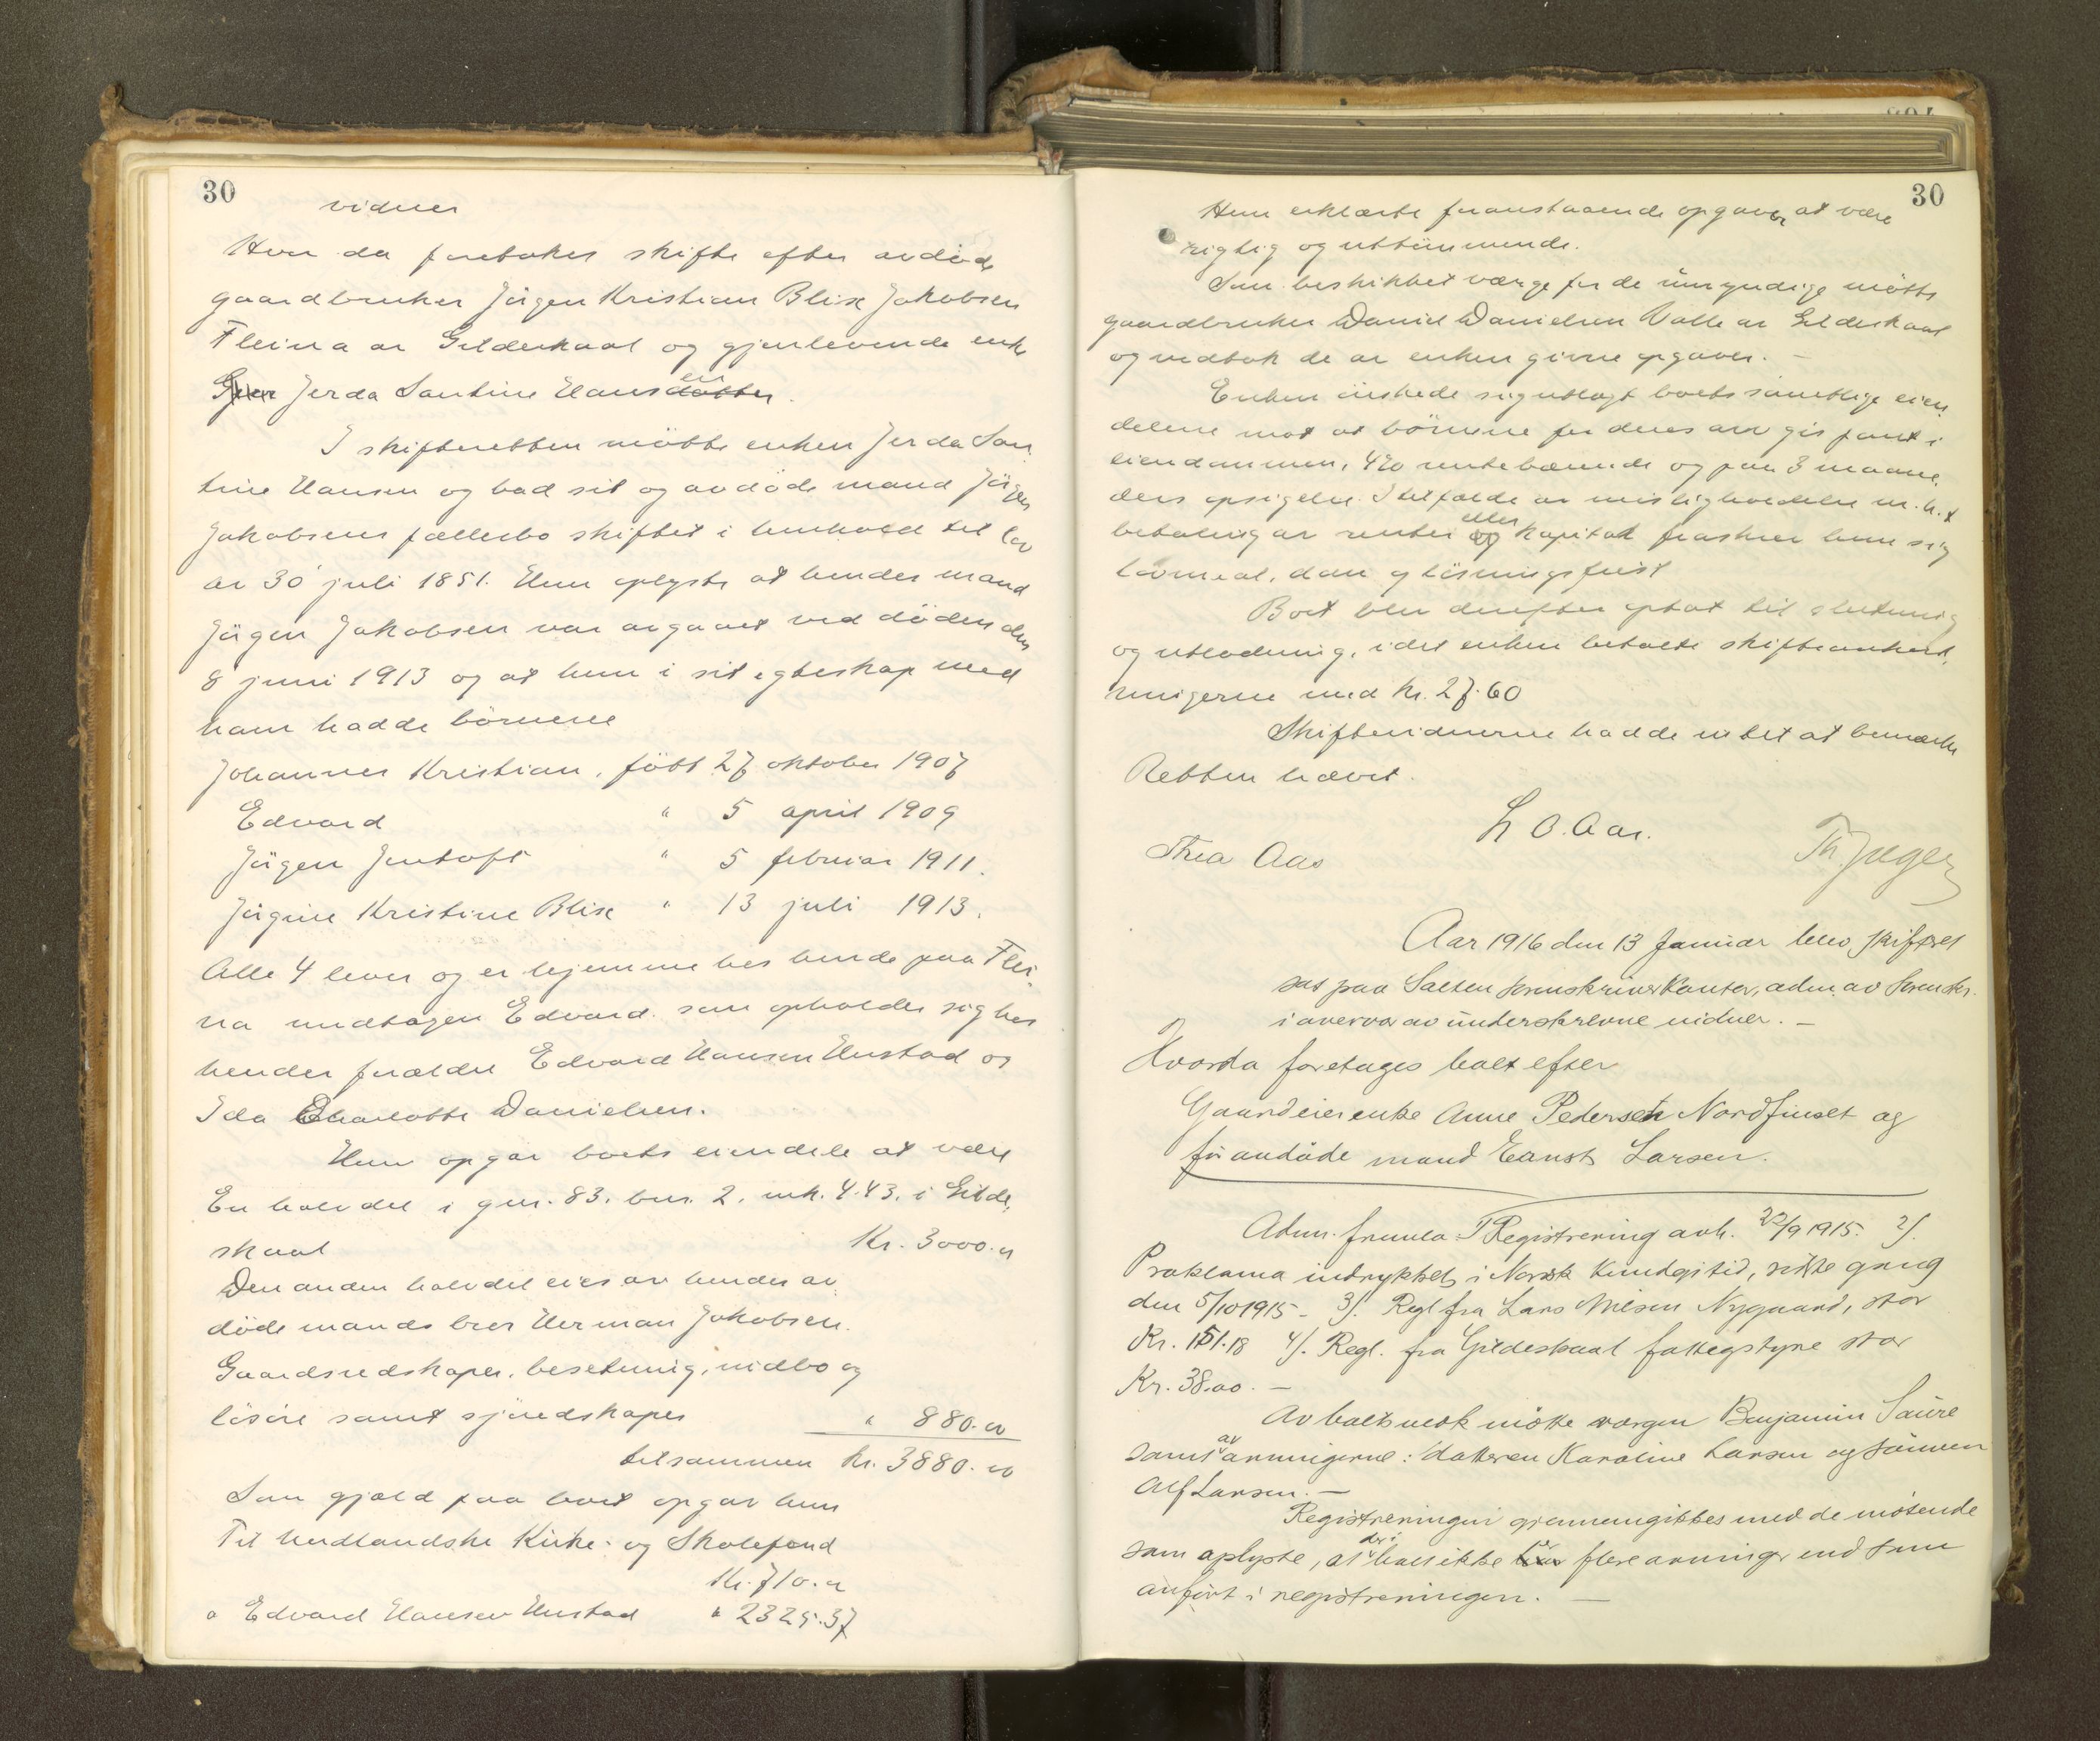 30
vidner
Hvor da foretokes skifte efter avdöde
gaardbruker Jörgen Kristian Blix Jakobsen
Fleina av Gildeskaal og gjenlevende enke
Jerda Santine Hansen
I skifteretten mötte enken Jerda San
tine Hansen og bad sit og avdöde mand Jörgen
Jakobsens fællesbo skiftet i henhold til lov
av 30 juli 1851. Hun oplyste at hendes mand
Jörgen Jakobsen var avgaaet ved döden den
8 juni 1913 og at hun i sit egteskap med
ham hadde börnene
Johannes Kristian, födt 27 oktober 1907
Edvard " 5 april 1909
Jörgen Jentoft " 5 februar 1911.
Jörgine Kristine Blix " 13 juli 1913.
Alle 4 lever og er hjemme hos hende paa Flei,
na undtagen Edvard som opholder sig hos
hendes forældre Edvard Hansen Unstad og
Ida Charlotte Danielsen.
Hun opgav boets eiendele at være
En halvdel i gnr. 83. bnr. 2. mk. 4.43. i Gilde,
skaal Kr. 3000.00
Den anden halvdel eies av hendes av,
döde mands bror Herman Jakobsen.
Gaardsredskaper, besetning, indbo og
lösöre samt sjöredskaper " 880.00
tilsammen Kr. 3880.00
Som gjæld paa boet opgav hun
Til Nordlandske Kirke- og Skolefond
Kr. 710.00
" Edvard Hansen Unstad " 2325.37
30
Hun erklærte foranstaaende opgaver at være
rigtig og uttömmende.
Som beskikket værge for de umyndige mötte
gaardbruker Daniel Danielsen Valle av Gildeskaal
og vedtok de av enken givne opgaver. –
Enken önskede sig utlagt boets samtlige eien,
dele mot at börnene for deres arv gis pant i
eiendommen, 4% rentebærende og paa 3 maane,
ders opsigelse. I tilfælde av misligholdelse m.h.t
betaling av renter eller kapital fraskrev hun sig
lovmaal, dom og lösningsfrist
Boet blev derefter optat til slutning
og utlodning, idet enken betalte skifteomkost,
ningerne med kr. 27.60
Skiftevidnerne hadde intet at bemærke
Retten hævet.
L O. Aas.
Thea Aas Th. Jæger
Aar 1916 den 13 Januar blev skifteret
sat paa Salten sorenskriverkontor, adm. av sorenskr.
i overvær av underskrevne vidner. –
Hvorda foretages boet efter
Gaardeierenke Anne Pedersen Nordfinset og
för avdöde mand Ernst Larsen.
Adm. fremla: 1) Registrering avh. 22/9 1915. 2).
Proklama indrykket i Norsk Kundgj.tid, siste gang
den 5/10 1915 – 3). Regl fra Lars Nilsen Nygaard, stor
Kr. 151.18 4). Regl. fra Gildeskaal fattigstyre stor
Kr. 38.00. –
Av boets vedk mötte værgen Benjamin Saure
samt av arvingerne: datteren Karoline Larsen og sönnen
Alf Larsen. –
Registreringen gjennemgikkes med de mötende
som oplyste, at der i boet ikke er flere arvinger end som
anfört i registreringen. –